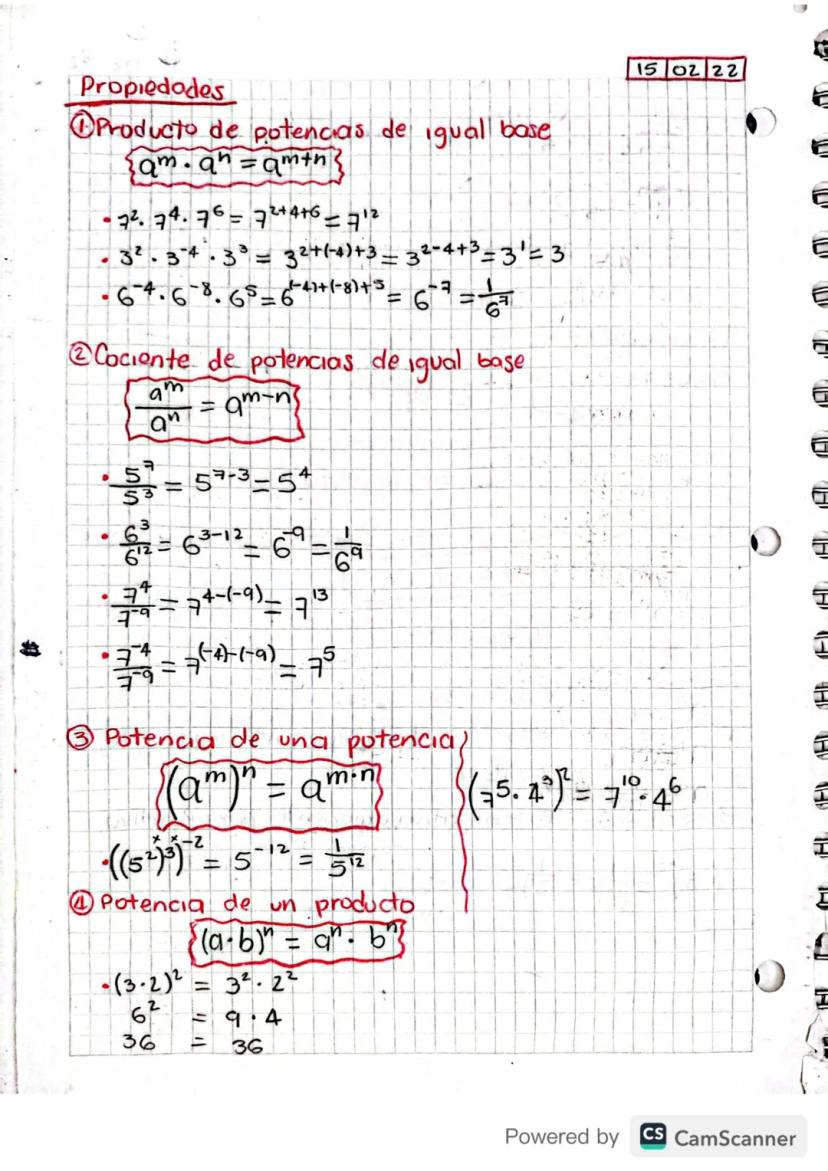 15 02 22
Propiedades
① Producto de potencias de igual base
a^m · a^n = a^(m+n)
• 7² · 7⁴ · 7⁶ = 7^(2+4+6) = 7¹²
• 3² · 3⁻⁴ · 3³ = 3^(2+(-4)+3) = 3^(2-4+3) = 3¹ = 3
• 6⁻⁴ · 6⁻⁸ · 6⁵ = 6^((-4)+(-8)+5) = 6⁻⁷ = 1/6⁷
② Cociente de potencias de igual base
a^m/a^n = a^(m-n)
• 5⁷/5³ = 5^(7-3) = 5⁴
• 6³/6¹² = 6^(3-12) = 6⁻⁹ = 1/6⁹
• 7⁴/7⁻⁹ = 7^(4-(-9)) = 7¹³
• 7⁻⁴/7⁻⁹ = 7^((-4)-(-9)) = 7⁵
③ Potencia de una potencia
(a^m)^n = a^(m·n)
(7⁵ · 4³)² = 7¹⁰ · 4⁶
• ((5²)³)⁻² = 5⁻¹² = 1/5¹²
④ Potencia de un producto
(a·b)^n = a^n · b^n
• (3·2)² = 3² · 2²
6² = 9 · 4
36 = 36
Powered by CS CamScanner